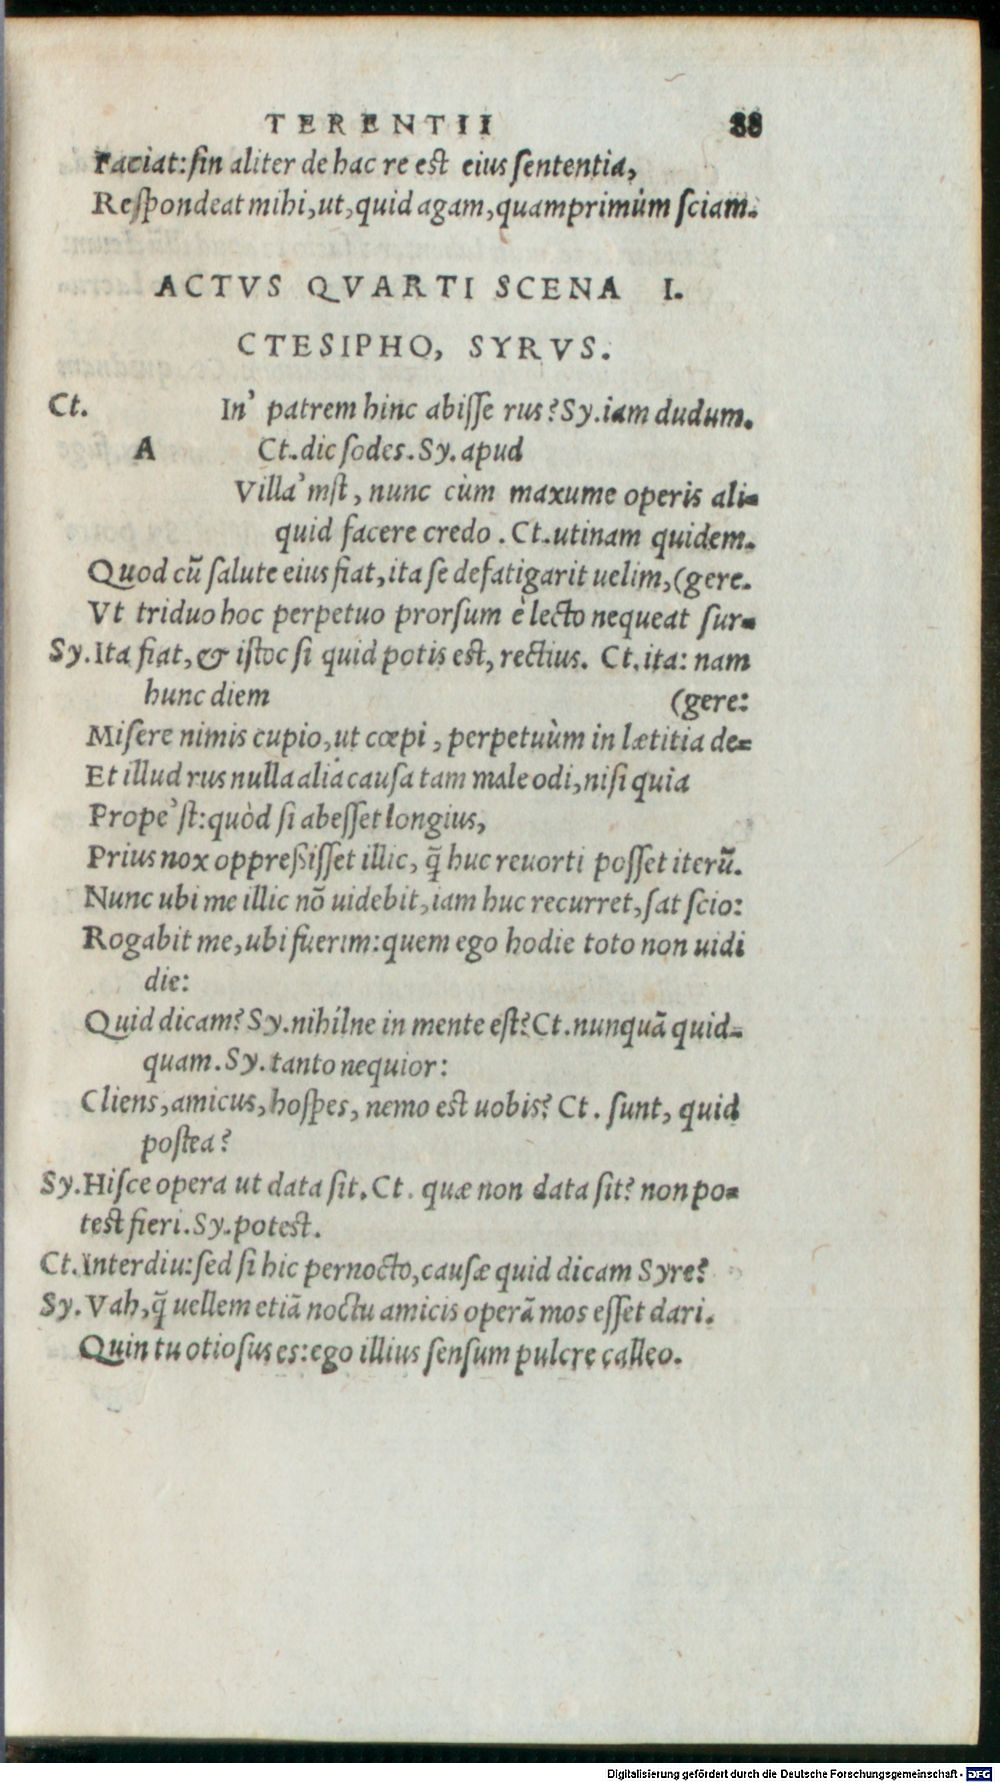 TERENTII 88
Faciat: sin aliter de hac re est eius sententia,
Respondeat mihi, ut, quid agam, quamprimùm sciam.
ACTVS QVARTI SCENA I.
CTESIPHO, SYRVS.
Ct. In' patrem hinc abisse rus? Sy. iam dudum.
A Ct. dic sodes. Sy. apud
Villa'mst, nunc cùm maxume operis ali-
quid facere credo. Ct. utinam quidem.
Quod cũ salute eius fiat, ita se defatigarit uelim, (gere.
Vt triduo hoc perpetuo prorsum è lecto nequeat sur-
Sy. Ita fiat, & istoc si quid potis est, rectius. Ct. ita: nam
hunc diem (gere:
Misere nimis cupio, ut cœpi, perpetuùm in lætitia de-
Et illud rus nulla alia causa tam male odi, nisi quia
Prope'st: quòd si abesset longius,
Prius nox oppreßisset illic, q̃ huc reuorti posset iterũ.
Nunc ubi me illic nõ uidebit, iam huc recurret, sat scio:
Rogabit me, ubi fuerim: quem ego hodie toto non uidi
die:
Quid dicam? Sy. nihilne in mente est? Ct. nunquã quid-
quam. Sy. tanto nequior:
Cliens, amicus, hospes, nemo est uobis? Ct. sunt, quid
postea?
Sy. Hisce opera ut data sit. Ct. quæ non data sit? non po-
test fieri. Sy. potest.
Ct. Interdiu: sed si hic pernocto, causæ quid dicam Syre?
Sy. Vah, q̃ uellem etiã noctu amicis operã mos esset dari.
Quin tu otiosus es: ego illius sensum pulcre calleo.
Digitalisierung gefördert durch die Deutsche Forschungsgemeinschaft - DFG